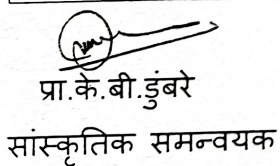 प्रा.के.बी.डुंबरे
सांस्कृतिक समन्वयक